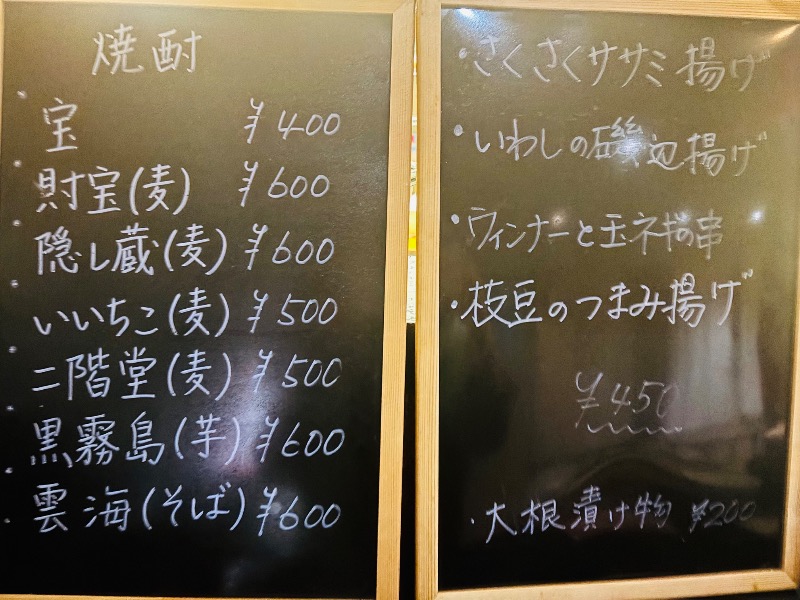 焼酎
宝 ¥400
財宝(麦) ¥600
隠し蔵(麦) ¥600
いいちこ(麦) ¥500
二階堂(麦) ¥500
黒霧島(芋) ¥600
雲海(そば) ¥600
・さくさくササミ揚げ
・いわしの磯辺揚げ
・ウィンナーと玉ネギの串
・枝豆のつまみ揚げ
¥450
・大根漬け物 ¥200